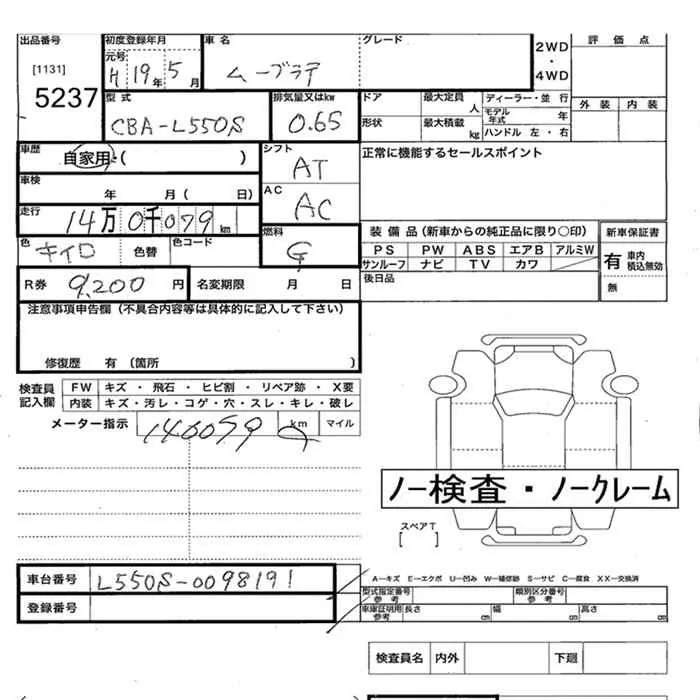 出品番号 初度登録年月 車名 グレード 2WD ・ 4WD 評価点
[1131] 元号 H 19年 5月 ムーブラテ
5237 型式 排気量又はkw ドア 最大定員 人 ディーラー・並行 外装 内装
CBA-L550S 0.65 形状 最大積載 kg モデル年式 年
ハンドル 左・右
車歴 自家用・( ) シフト AT 正常に機能するセールスポイント
車検 年 月( 日) AC AC
走行 14万0千079 km 燃料 G 装備品(新車からの純正品に限り○印) 新車保証書
色 キイロ 色替 色コード PS PW ABS エアB アルミW 有 車内積込無効
サンルーフ ナビ TV カワ
R券 9,200円 名変期限 月 日 後日品 無
注意事項申告欄(不具合内容等は具体的に記入して下さい)
修復歴 有(箇所 )
検査員記入欄 FW キズ・飛石・ヒビ割・リペア跡・X要
内装 キズ・汚レ・コゲ・穴・スレ・キレ・破レ
メーター指示 km マイル
ノー検査・ノークレーム
スペアT
[ ]
車台番号 L550S-0098191 A―キズ E―エクボ U―凹み W―補修跡 S―サビ C―腐食 XX―交換済
登録番号 型式指定番号 参考 類別区分番号 参考
車庫証明用 参考 長さ cm 幅 cm 高さ cm
検査員名 内外 下廻